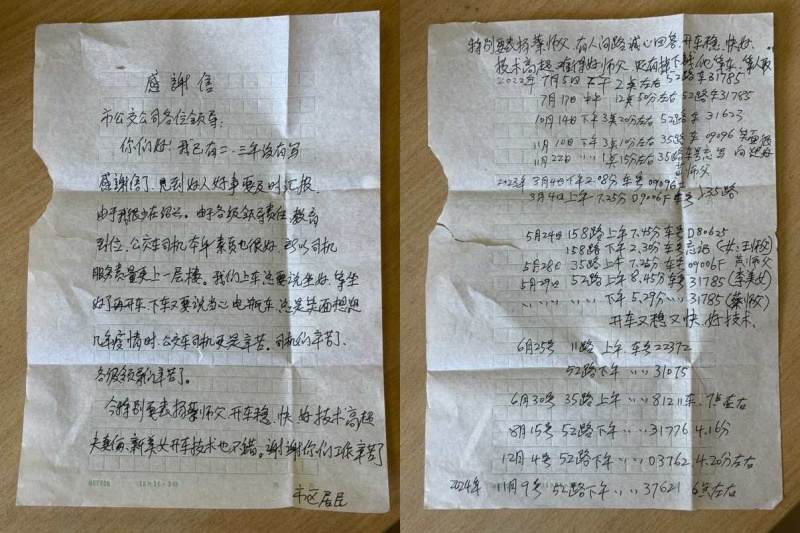 感謝信
市公交公司各位领导:
你们好!我已有二、三年没有写
感谢信了,见到好人好事要及时汇报,
由于我很少在绍兴。由于各级领导责任,教育
到位,公交车司机本年素质也很好,所以司机
服务质量更上一层楼。我们上车总要说坐好,等坐
好了再开车,下车又要说当心电瓶车,总是笑面想想
几年疫情时,公交车司机更是辛苦。司机们辛苦了,
各级领导们辛苦了。
今特别要表扬蔡师父,开车稳、快 好 技术高超
开车技术也不错。谢谢你们工作辛苦了
市区居民
特别要表扬蔡师父,有人问路诚心回答,开车稳、快好,
技术高超,难得好师父,
2022年 7月5日 下午 2点左右 52路 车31785
7月17日 中午 12点50分左右 52路车31785
10月14日下午3点20分左右 52路 车 31623
11月10日 下午3点10分左右 35路 车 09096
11月22日 〃 1点15分左右 35路车号忘写
师父
2023年3月4日下午2.08分 车号09096F
3月4日上午7.25分 09006F 车号 35路
5月24日 158路上午7.45分车号D80625
158路下午2.30分车号忘记(女:王师父)
5月28日 35路上午7.25分 车号09006F 黄师父
5月29日 52路上午8.45分 车号31785(李美女)
〃 〃 〃 下午5.29分 〃 31785(蔡师父)
开车又稳又快,好技术,
6月25号 11路 上午 车号22372
52路下午 〃 〃 31075
6月30号 35路上午 〃 〃 81211车,7点左右
8月15号 52路下午 〃 〃 31776 4.16分
12月4号 52路下午 〃 〃 03762 4.20分左右
2024年 11月9号 52路下午 〃 〃 37621 6点左右